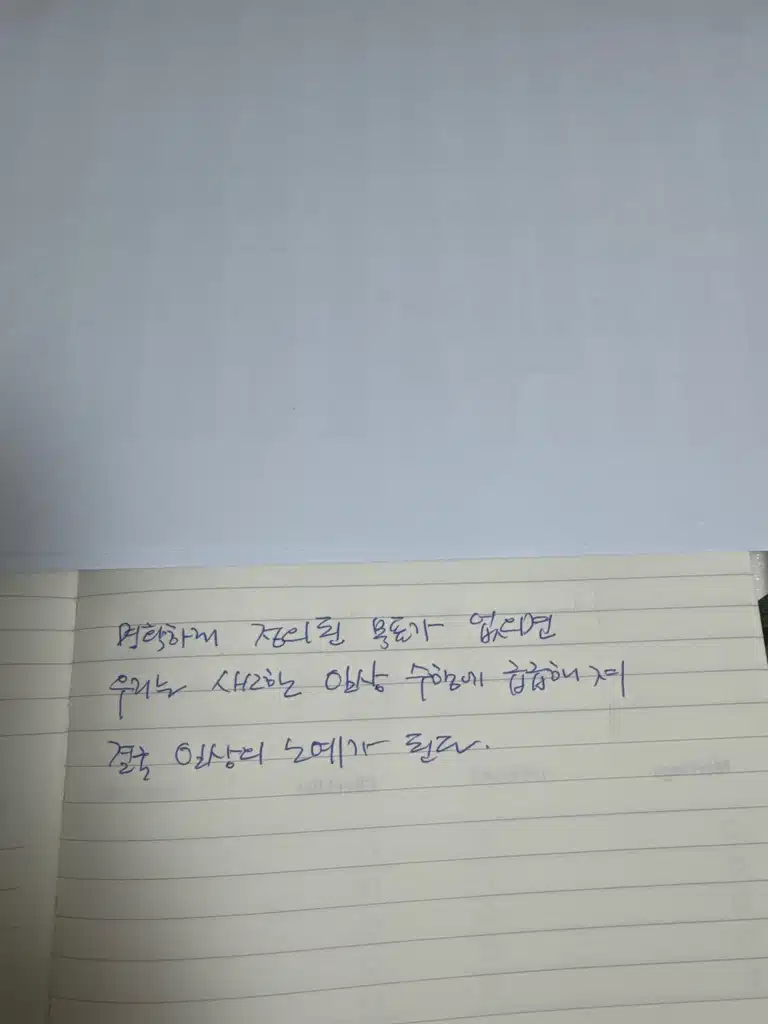 명확하게 정의된 목표가 없으면
우리는 사소한 일상 수행에 급급해져
결국 일상의 노예가 된다.